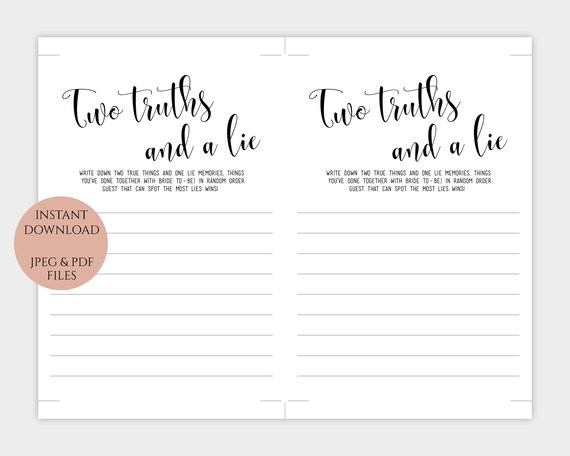 Two truths
and a lie
WRITE DOWN TWO TRUE THINGS AND ONE LIE MEMORIES, THINGS
YOU'VE DONE TOGETHER WITH BRIDE TO-BE) IN RANDOM ORDER
GUEST THAT CAN SPOT THE MOST LIES WINS!
Two truths
and a lie
WRITE DOWN TWO TRUE THINGS AND ONE LIE MEMORIES, THINGS
YOU'VE DONE TOGETHER WITH BRIDE TO-BE) IN RANDOM ORDER
GUEST THAT CAN SPOT THE MOST LIES WINS!
INSTANT
DOWNLOAD
JPEG & PDF
FILES